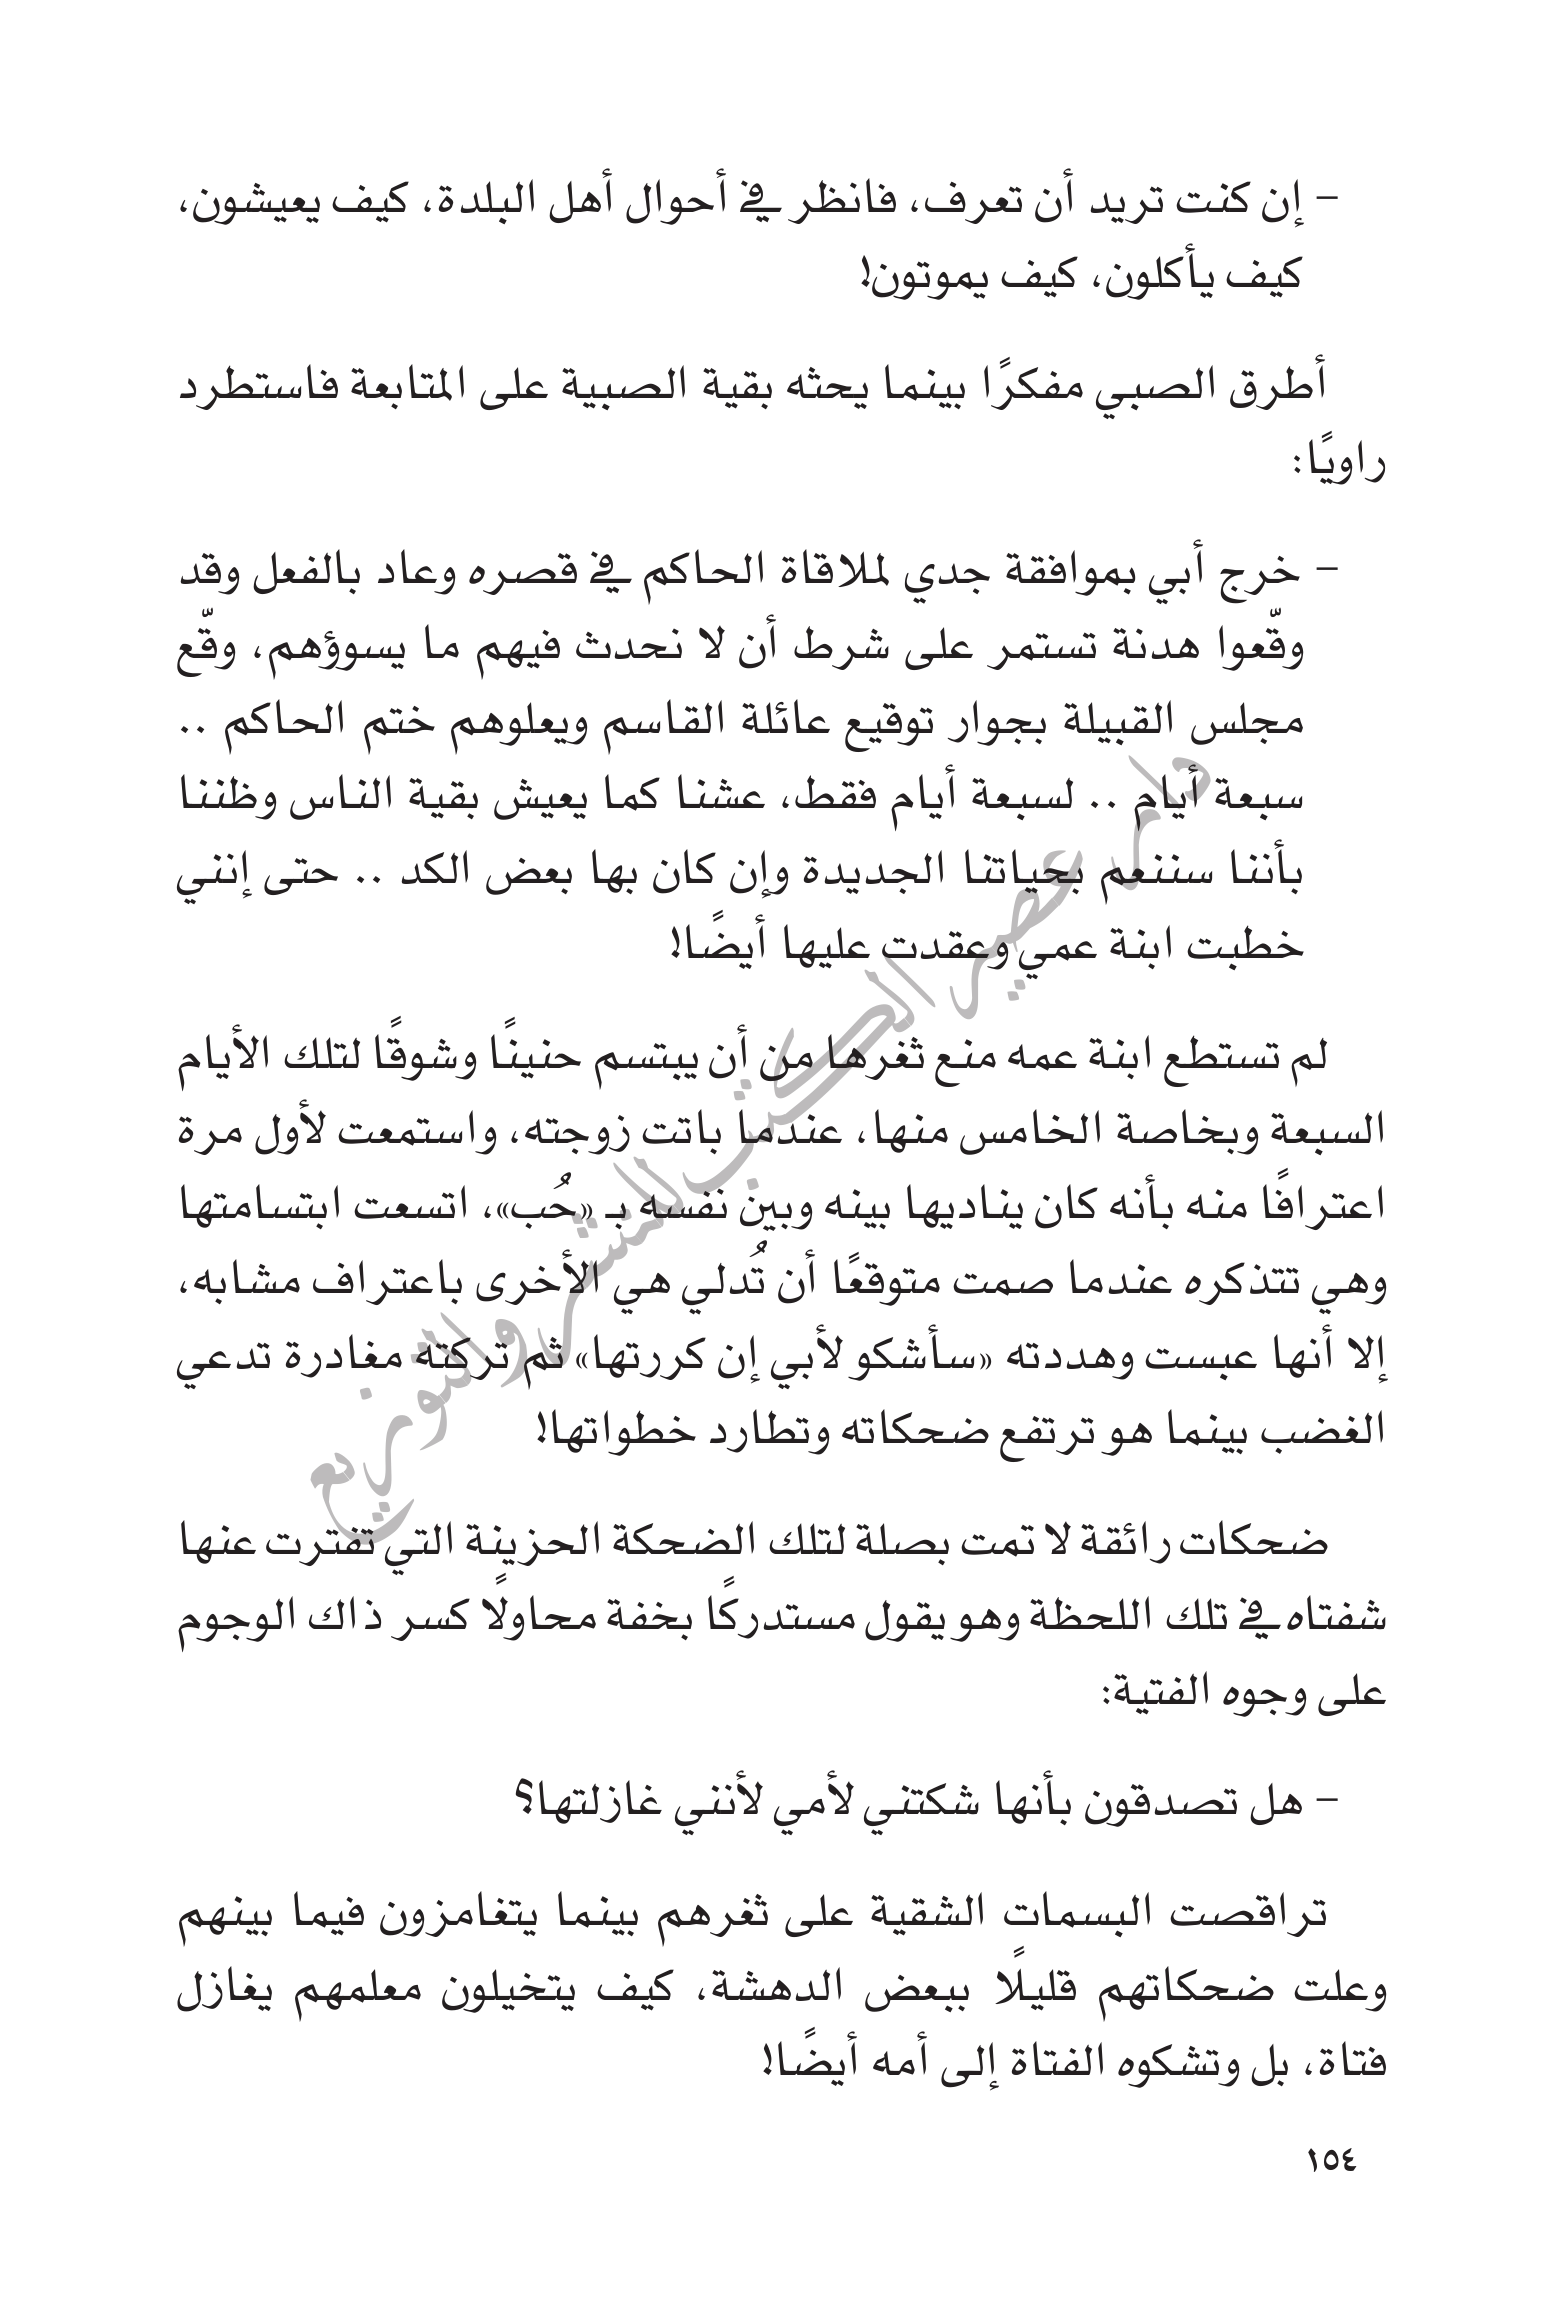 – إن كنت تريد أن تعرف، فانظر في أحوال أهل البلدة، كيف يعيشون،
كيف يأكلون، كيف يموتون!
أطرق الصبي مفكرًا بينما يحثه بقية الصبية على المتابعة فاستطرد
راويًا:
– خرج أبي بموافقة جدي لملاقاة الحاكم في قصره وعاد بالفعل وقد
وقّعوا هدنة تستمر على شرط أن لا نحدث فيهم ما يسوؤهم، وقّع
مجلس القبيلة بجوار توقيع عائلة القاسم ويعلوهم ختم الحاكم ..
سبعة أيام .. لسبعة أيام فقط، عشنا كما يعيش بقية الناس وظننا
بأننا سننعم بحياتنا الجديدة وإن كان بها بعض الكد .. حتى إنني
خطبت ابنة عمي وعقدت عليها أيضًا!
لم تستطع ابنة عمه منع ثغرها من أن يبتسم حنينًا وشوقًا لتلك الأيام
السبعة وبخاصة الخامس منها، عندما باتت زوجته، واستمعت لأول مرة
اعترافًا منه بأنه كان يناديها بينه وبين نفسه بـ «حُب»، اتسعت ابتسامتها
وهي تتذكره عندما صمت متوقعًا أن تُدلي هي الأخرى باعتراف مشابه،
إلا أنها عبست وهددته «سأشكو لأبي إن كررتها» ثم تركته مغادرة تدعي
الغضب بينما هو ترتفع ضحكاته وتطارد خطواتها!
ضحكات رائقة لا تمت بصلة لتلك الضحكة الحزينة التي تفترت عنها
شفتاه في تلك اللحظة وهو يقول مستدركًا بخفة محاولًا كسر ذاك الوجوم
على وجوه الفتية:
– هل تصدقون بأنها شكتني لأمي لأنني غازلتها؟
تراقصت البسمات الشقية على ثغرهم بينما يتغامزون فيما بينهم
وعلت ضحكاتهم قليلًا ببعض الدهشة، كيف يتخيلون معلمهم يغازل
فتاة، بل وتشكوه الفتاة إلى أمه أيضًا!
١٥٤
دار عصير الكتب للنشر والتوزيع